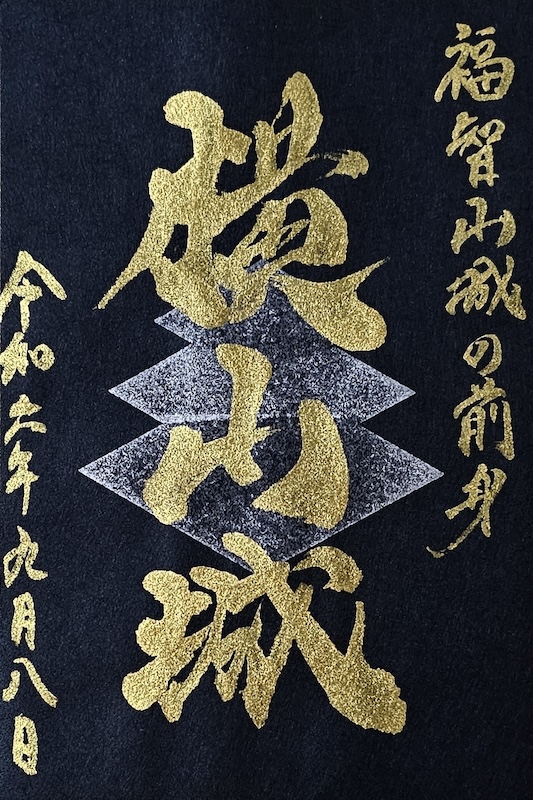 福智山城の前身
横山城
令和六年九月八日